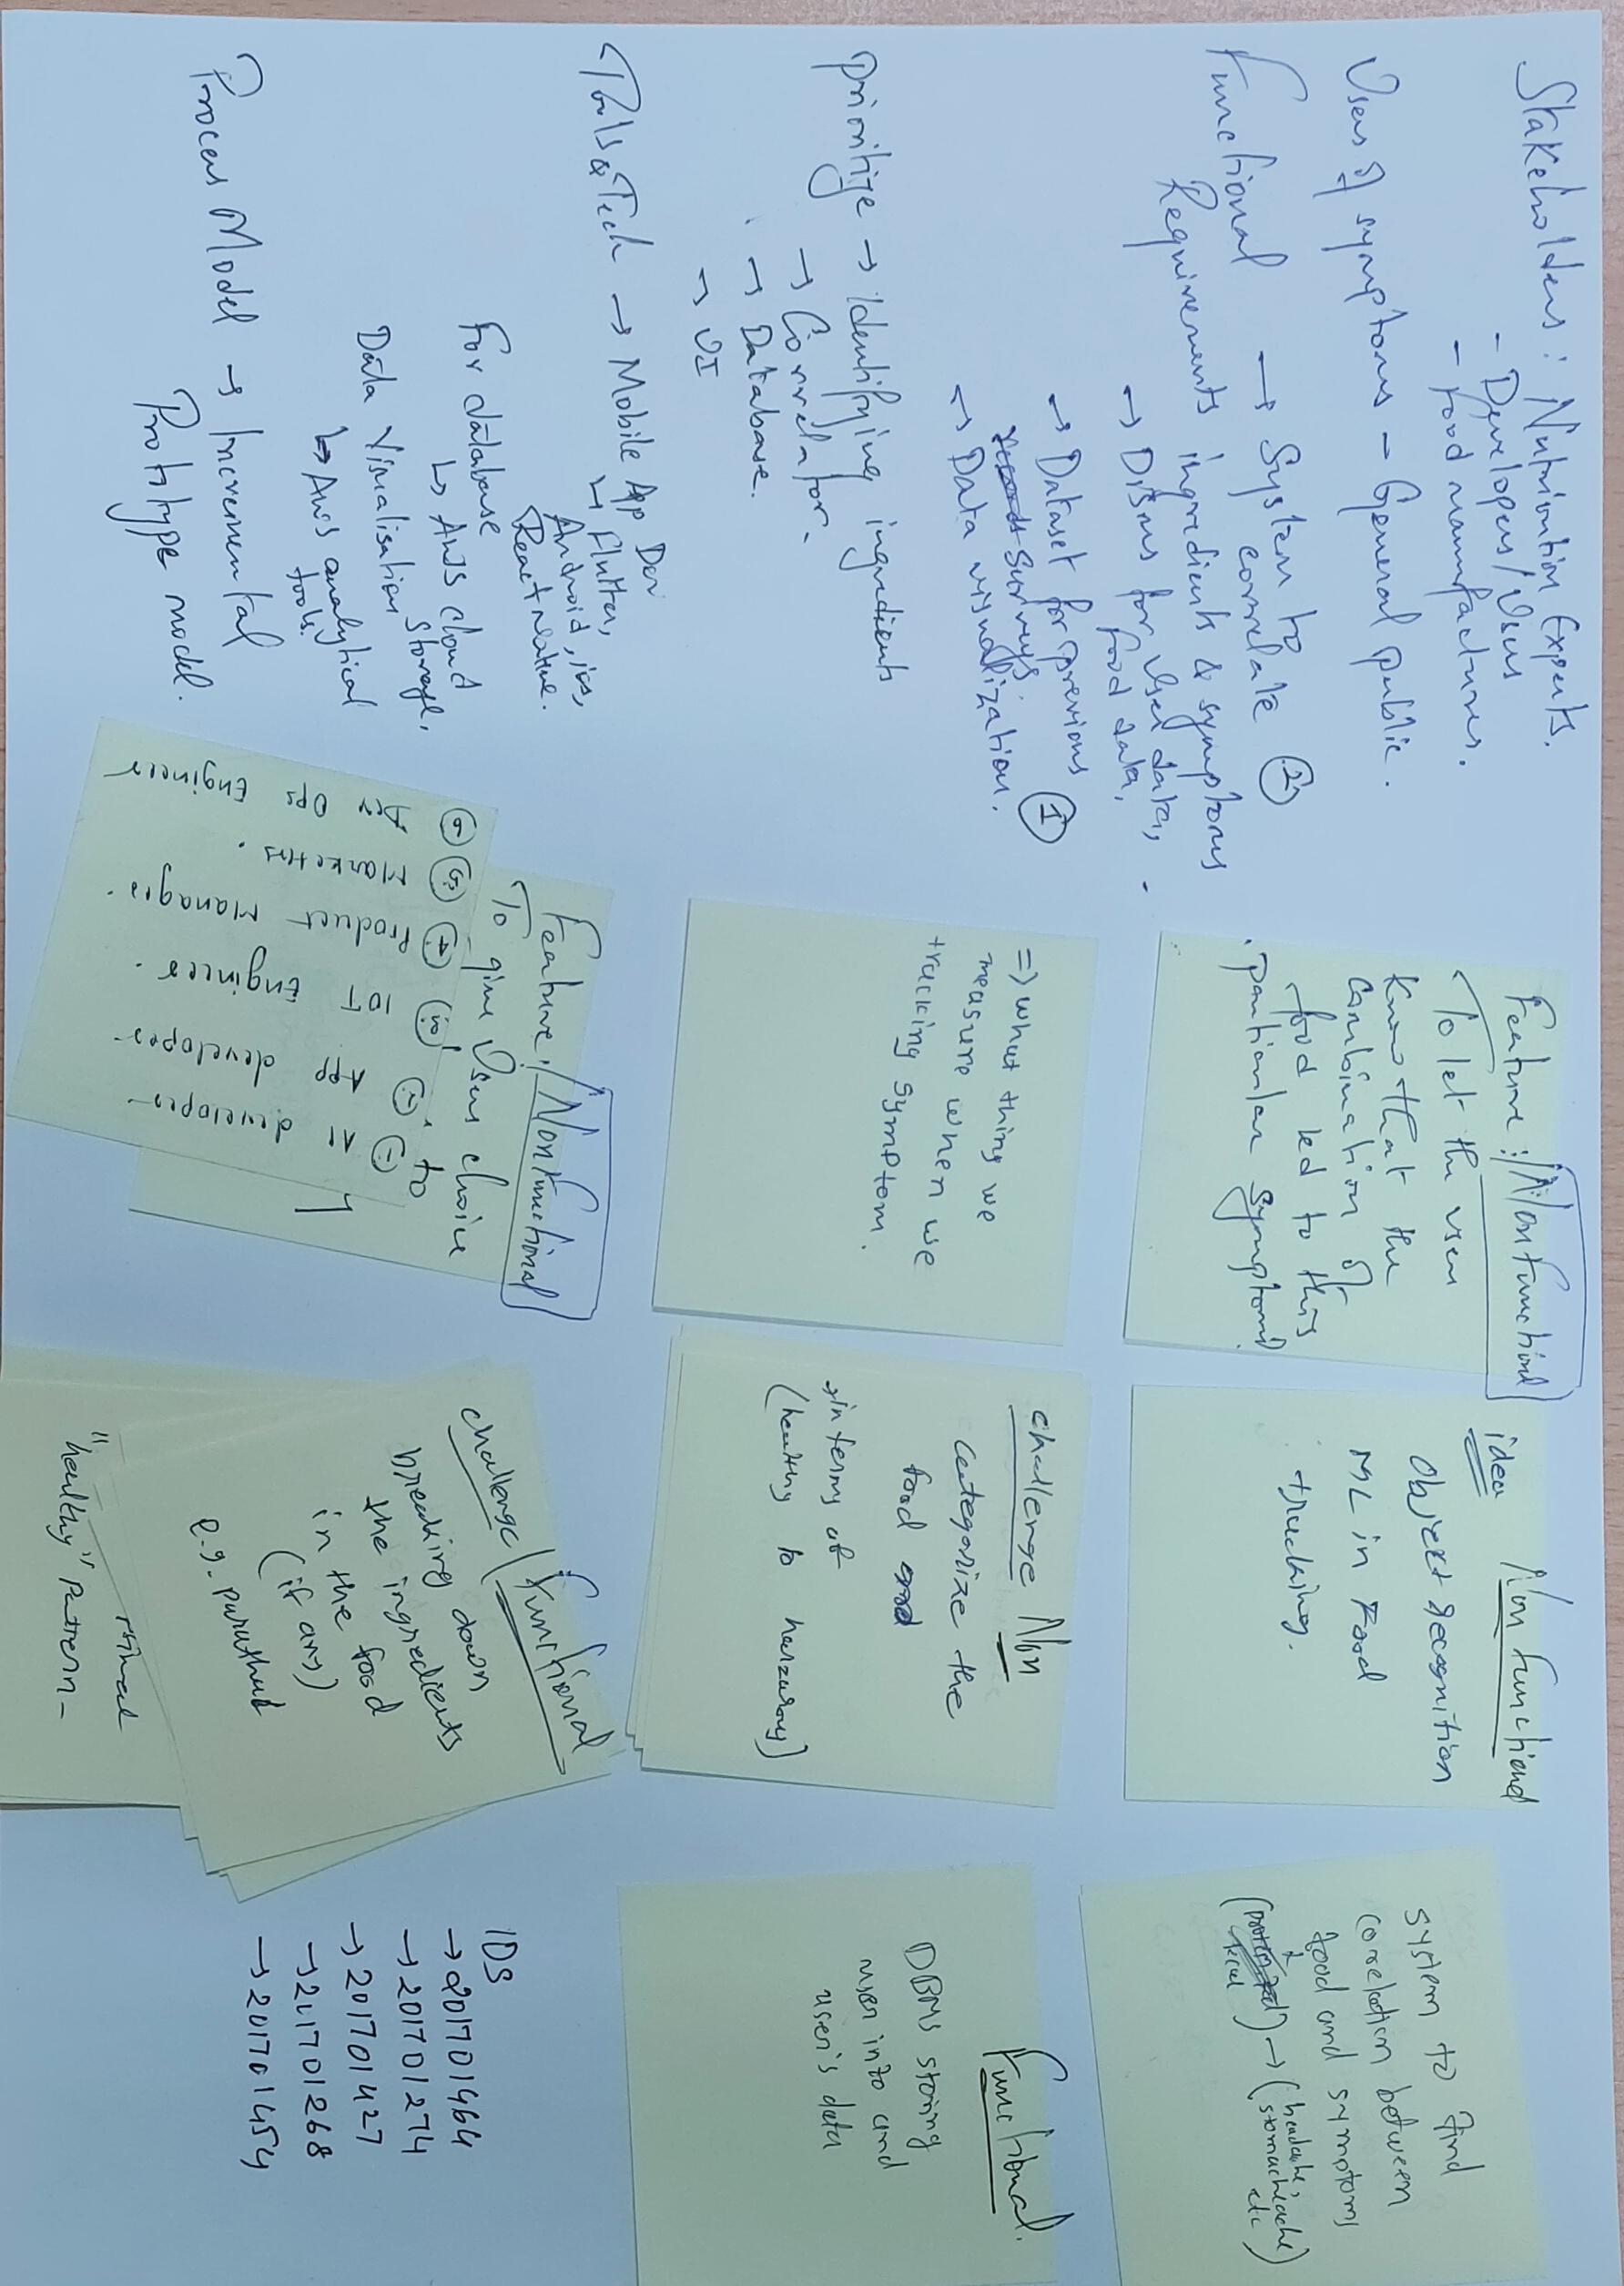 Stakeholders: Nutriontion Experts.
- Developers/Users
- Food manufactures.
Users of symptoms - General public.
Functional Requirements
→ System to correlate ②
ingredients & symptons
→ DBMS for user data,
food data,
→ Dataset for previous
surveys. ①
→ Data visualization.
prioritize → identifying ingredients
→ Correlator.
→ Database.
→ UI
Tools & Tech → Mobile App Dev
↳ Flutter,
Android, ios,
React native.
For database
↳ AWS cloud
storage.
Data Visualisation
↳ AWS analytical
tools.
Process Model → Incremental
Prototype model.
Feature: Nonfunctional
To let the user
know that the
combination of
food led to this
particular symptom.
⇒ what thing we
measure when we
tracking symptom.
Feature: Nonfunctional
To give users choice
to
① AI developer
② App developer
③ IOT Engineer.
④ Product Manager.
⑤ Marketers.
⑥ Dev Ops Engineer
idea Non functional
Object recognition
ML in Food
tracking.
challenge Non
categorize the
food
→ in terms of
(healthy to
challenge Functional
breaking down
the ingredients
in the food
(if any)
e.g. paratha
"healthy" pattern-
system to find
corelation between
food and symptoms
→ (headache,
stomacheache)
etc
Functional.
DBMS storing
user info and
user's data
IDS
→ 201701464
→ 201701274
→ 201701427
→ 201701268
→ 201701454